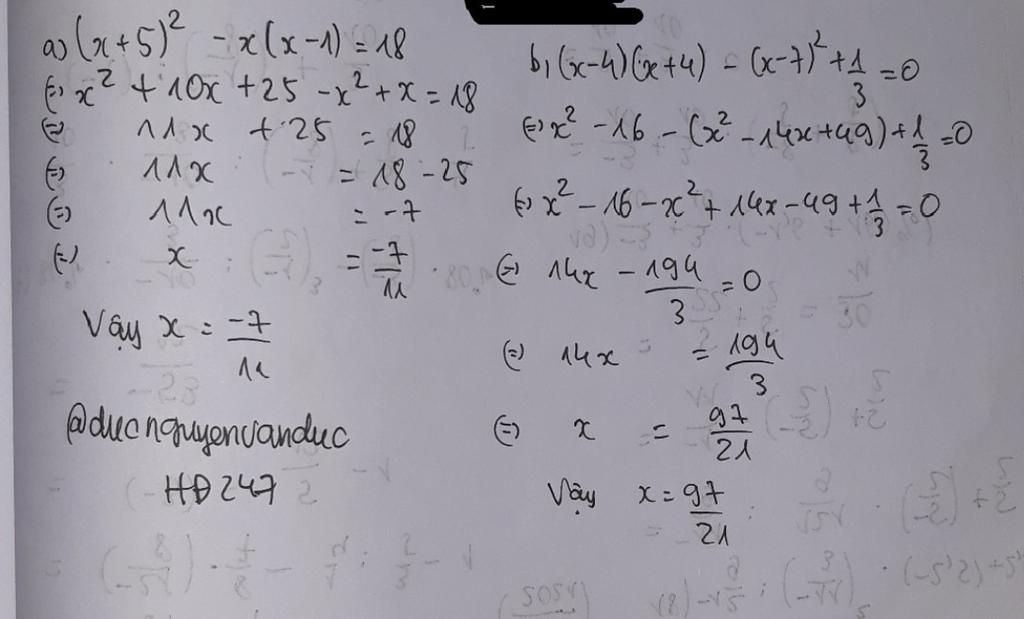 a) (x+5)² - x(x-1) = 18
⇔ x² + 10x + 25 - x² + x = 18
⇔ 11x + 25 = 18
⇔ 11x = 18 - 25
⇔ 11x = -7
⇔ x = -7/11
Vậy x = -7/11
@ducnguyenvanduc
HĐ247
b, (x-4)(x+4) - (x-7)² + 1/3 = 0
⇔ x² - 16 - (x² - 14x + 49) + 1/3 = 0
⇔ x² - 16 - x² + 14x - 49 + 1/3 = 0
⇔ 14x - 194/3 = 0
⇔ 14x = 194/3
⇔ x = 97/21
Vậy x = 97/21